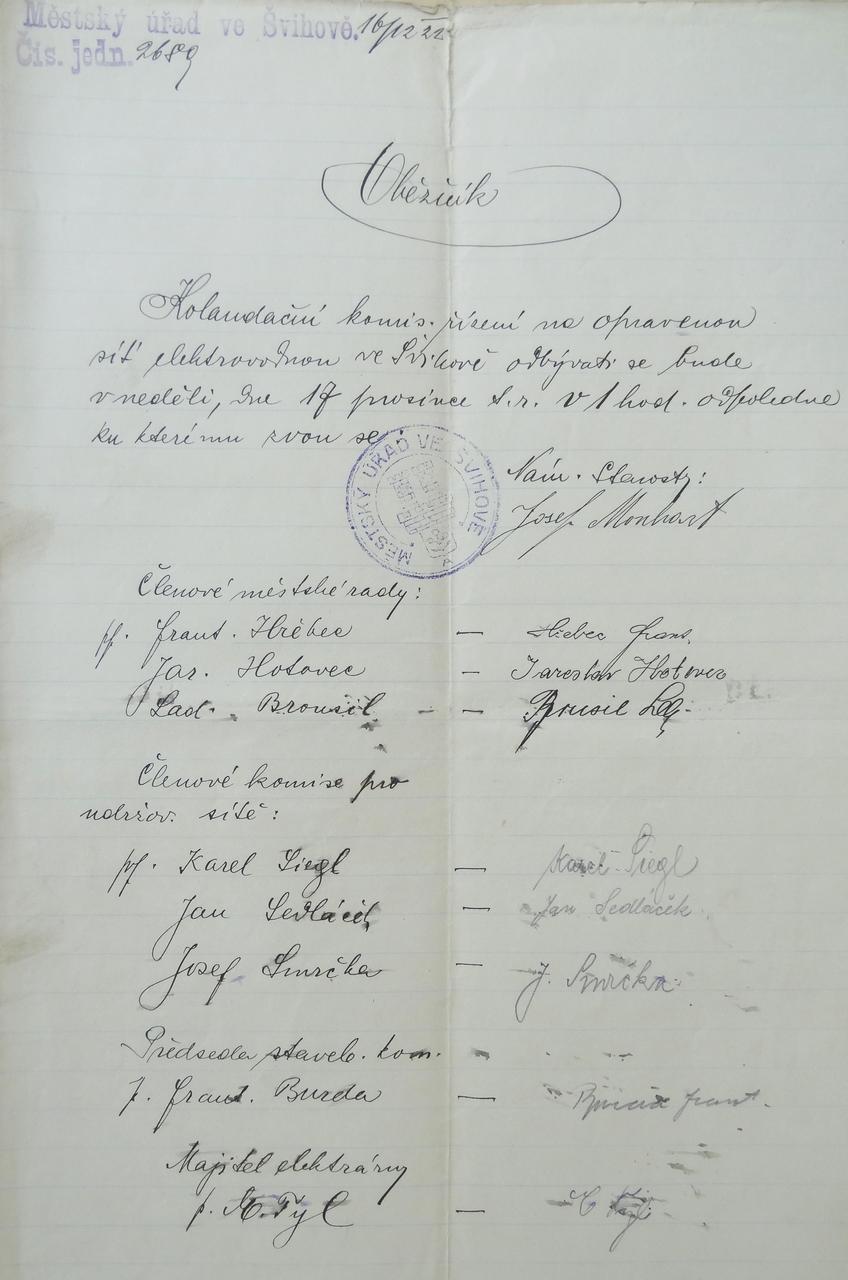 Městský úřad ve Švihově. 16/12 22
Čís. jedn. 2689
Oběžník
Kolaudační komis. řízení na opravenou
síť elektrovodnou ve Švihově odbývati se bude
v neděli, dne 17 prosince t.r. v 1 hod. odpoledne
ku kterému zvou se:
MĚSTSKÝ ÚŘAD VE ŠVIHOVĚ
Nám. Starosty:
Josef Monhart
Členové městské rady:
pp. Frant. Hřebec — Hřebec Frant.
Jar. Hotovec — Jaroslav Hotovec
Lad. Brousil — Brousil Lad.
Členové komise pro
udržov. sítě:
pp. Karel Siegl — Karel Siegl
Jan Sedláček — Jan Sedláček
Josef Smrčka — J. Smrčka
Předseda staveb. kom.
p. Frant. Burda — Frant.
Majitel elektrárny
p. M. Tyl —